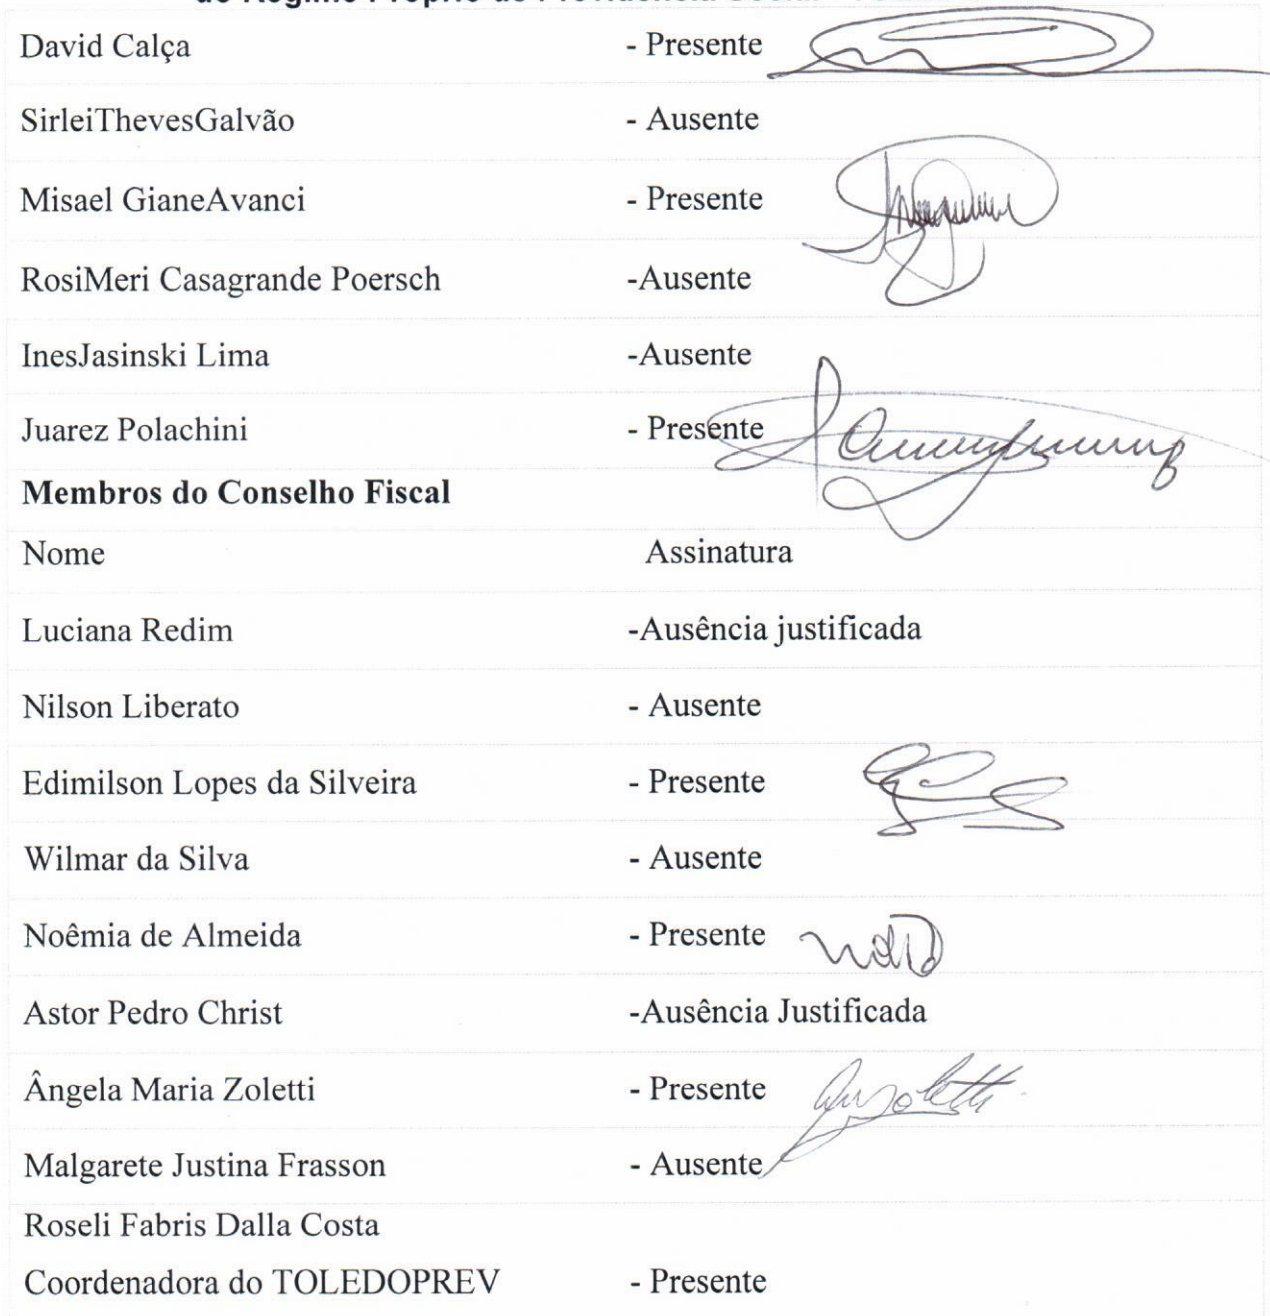 David Calça - Presente
SirleiThevesGalvão - Ausente
Misael GianeAvanci - Presente
RosiMeri Casagrande Poersch -Ausente
InesJasinski Lima -Ausente
Juarez Polachini - Presente
Membros do Conselho Fiscal
Nome Assinatura
Luciana Redim -Ausência justificada
Nilson Liberato - Ausente
Edimilson Lopes da Silveira - Presente
Wilmar da Silva - Ausente
Noêmia de Almeida - Presente
Astor Pedro Christ -Ausência Justificada
Ângela Maria Zoletti - Presente
Malgarete Justina Frasson - Ausente
Roseli Fabris Dalla Costa
Coordenadora do TOLEDOPREV - Presente